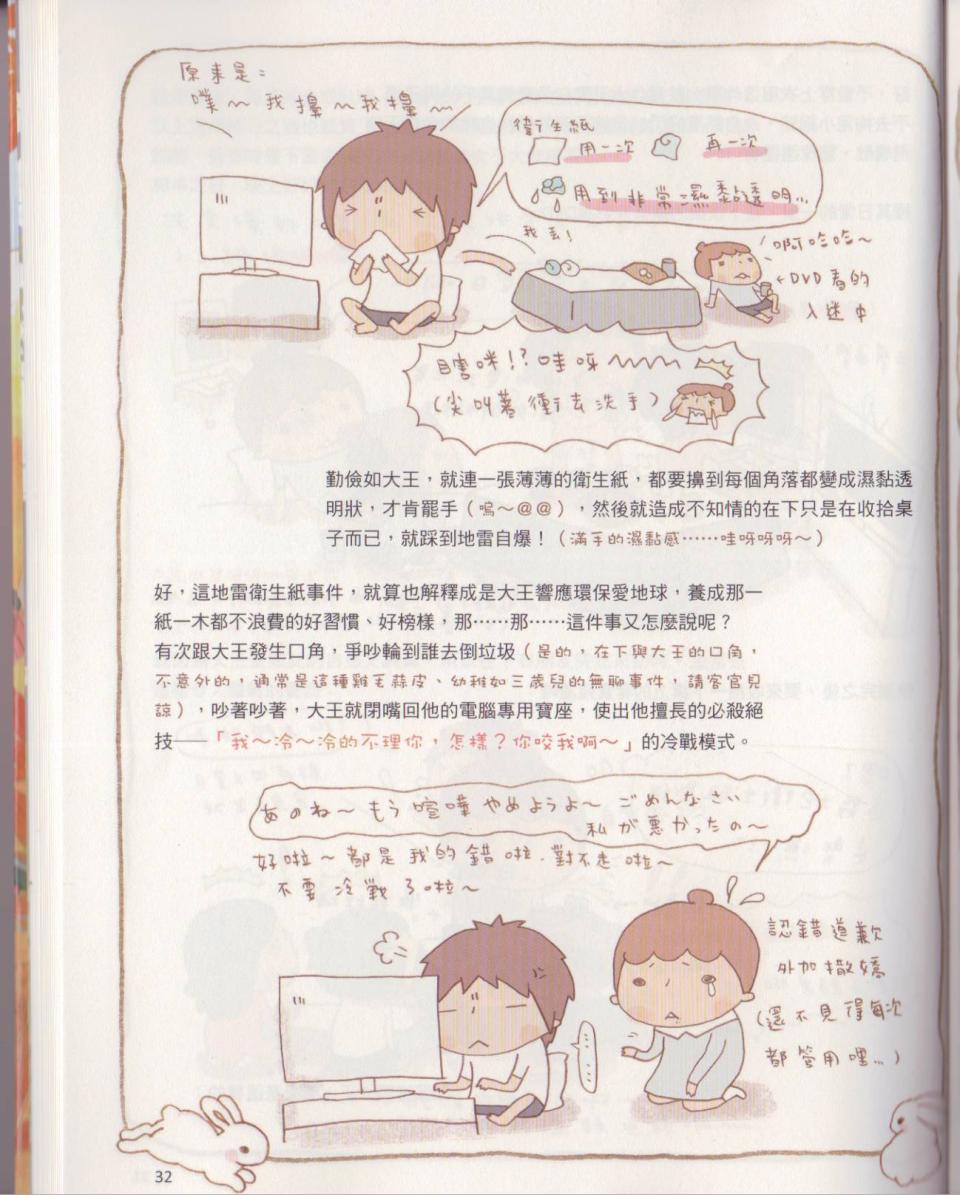 原來是:
噗～我擤～我擤～
衛生紙
用一次 再一次
用到非常濕黏透明…
我丟!
啊哈哈～
←DVD看的
入迷中
瞎咪!?哇呀～～～～
(尖叫著衝去洗手)
勤儉如大王，就連一張薄薄的衛生紙，都要擤到每個角落都變成濕黏透
明狀，才肯罷手（嗚～＠＠），然後就造成不知情的在下只是在收拾桌
子而已，就踩到地雷自爆！（滿手的濕黏感……哇呀呀呀～）
好，這地雷衛生紙事件，就算也解釋成是大王響應環保愛地球，養成那一
紙一木都不浪費的好習慣、好榜樣，那……那……這件事又怎麼說呢？
有次跟大王發生口角，爭吵輪到誰去倒垃圾（是的，在下與大王的口角，
不意外的，通常是這種雞毛蒜皮、幼稚如三歲兒的無聊事件，請客官見
諒），吵著吵著，大王就閉嘴回他的電腦專用寶座，使出他擅長的必殺絕
技——「我～冷～冷的不理你，怎樣？你咬我啊～」的冷戰模式。
あのね～もう喧嘩やめようよ～ ごめんなさい
私が悪かったの～
好啦～都是我的錯啦．對不起啦～
不要冷戰了啦～
認錯道歉
外加撒嬌
(還不見得每次
都管用哩…)
……
32